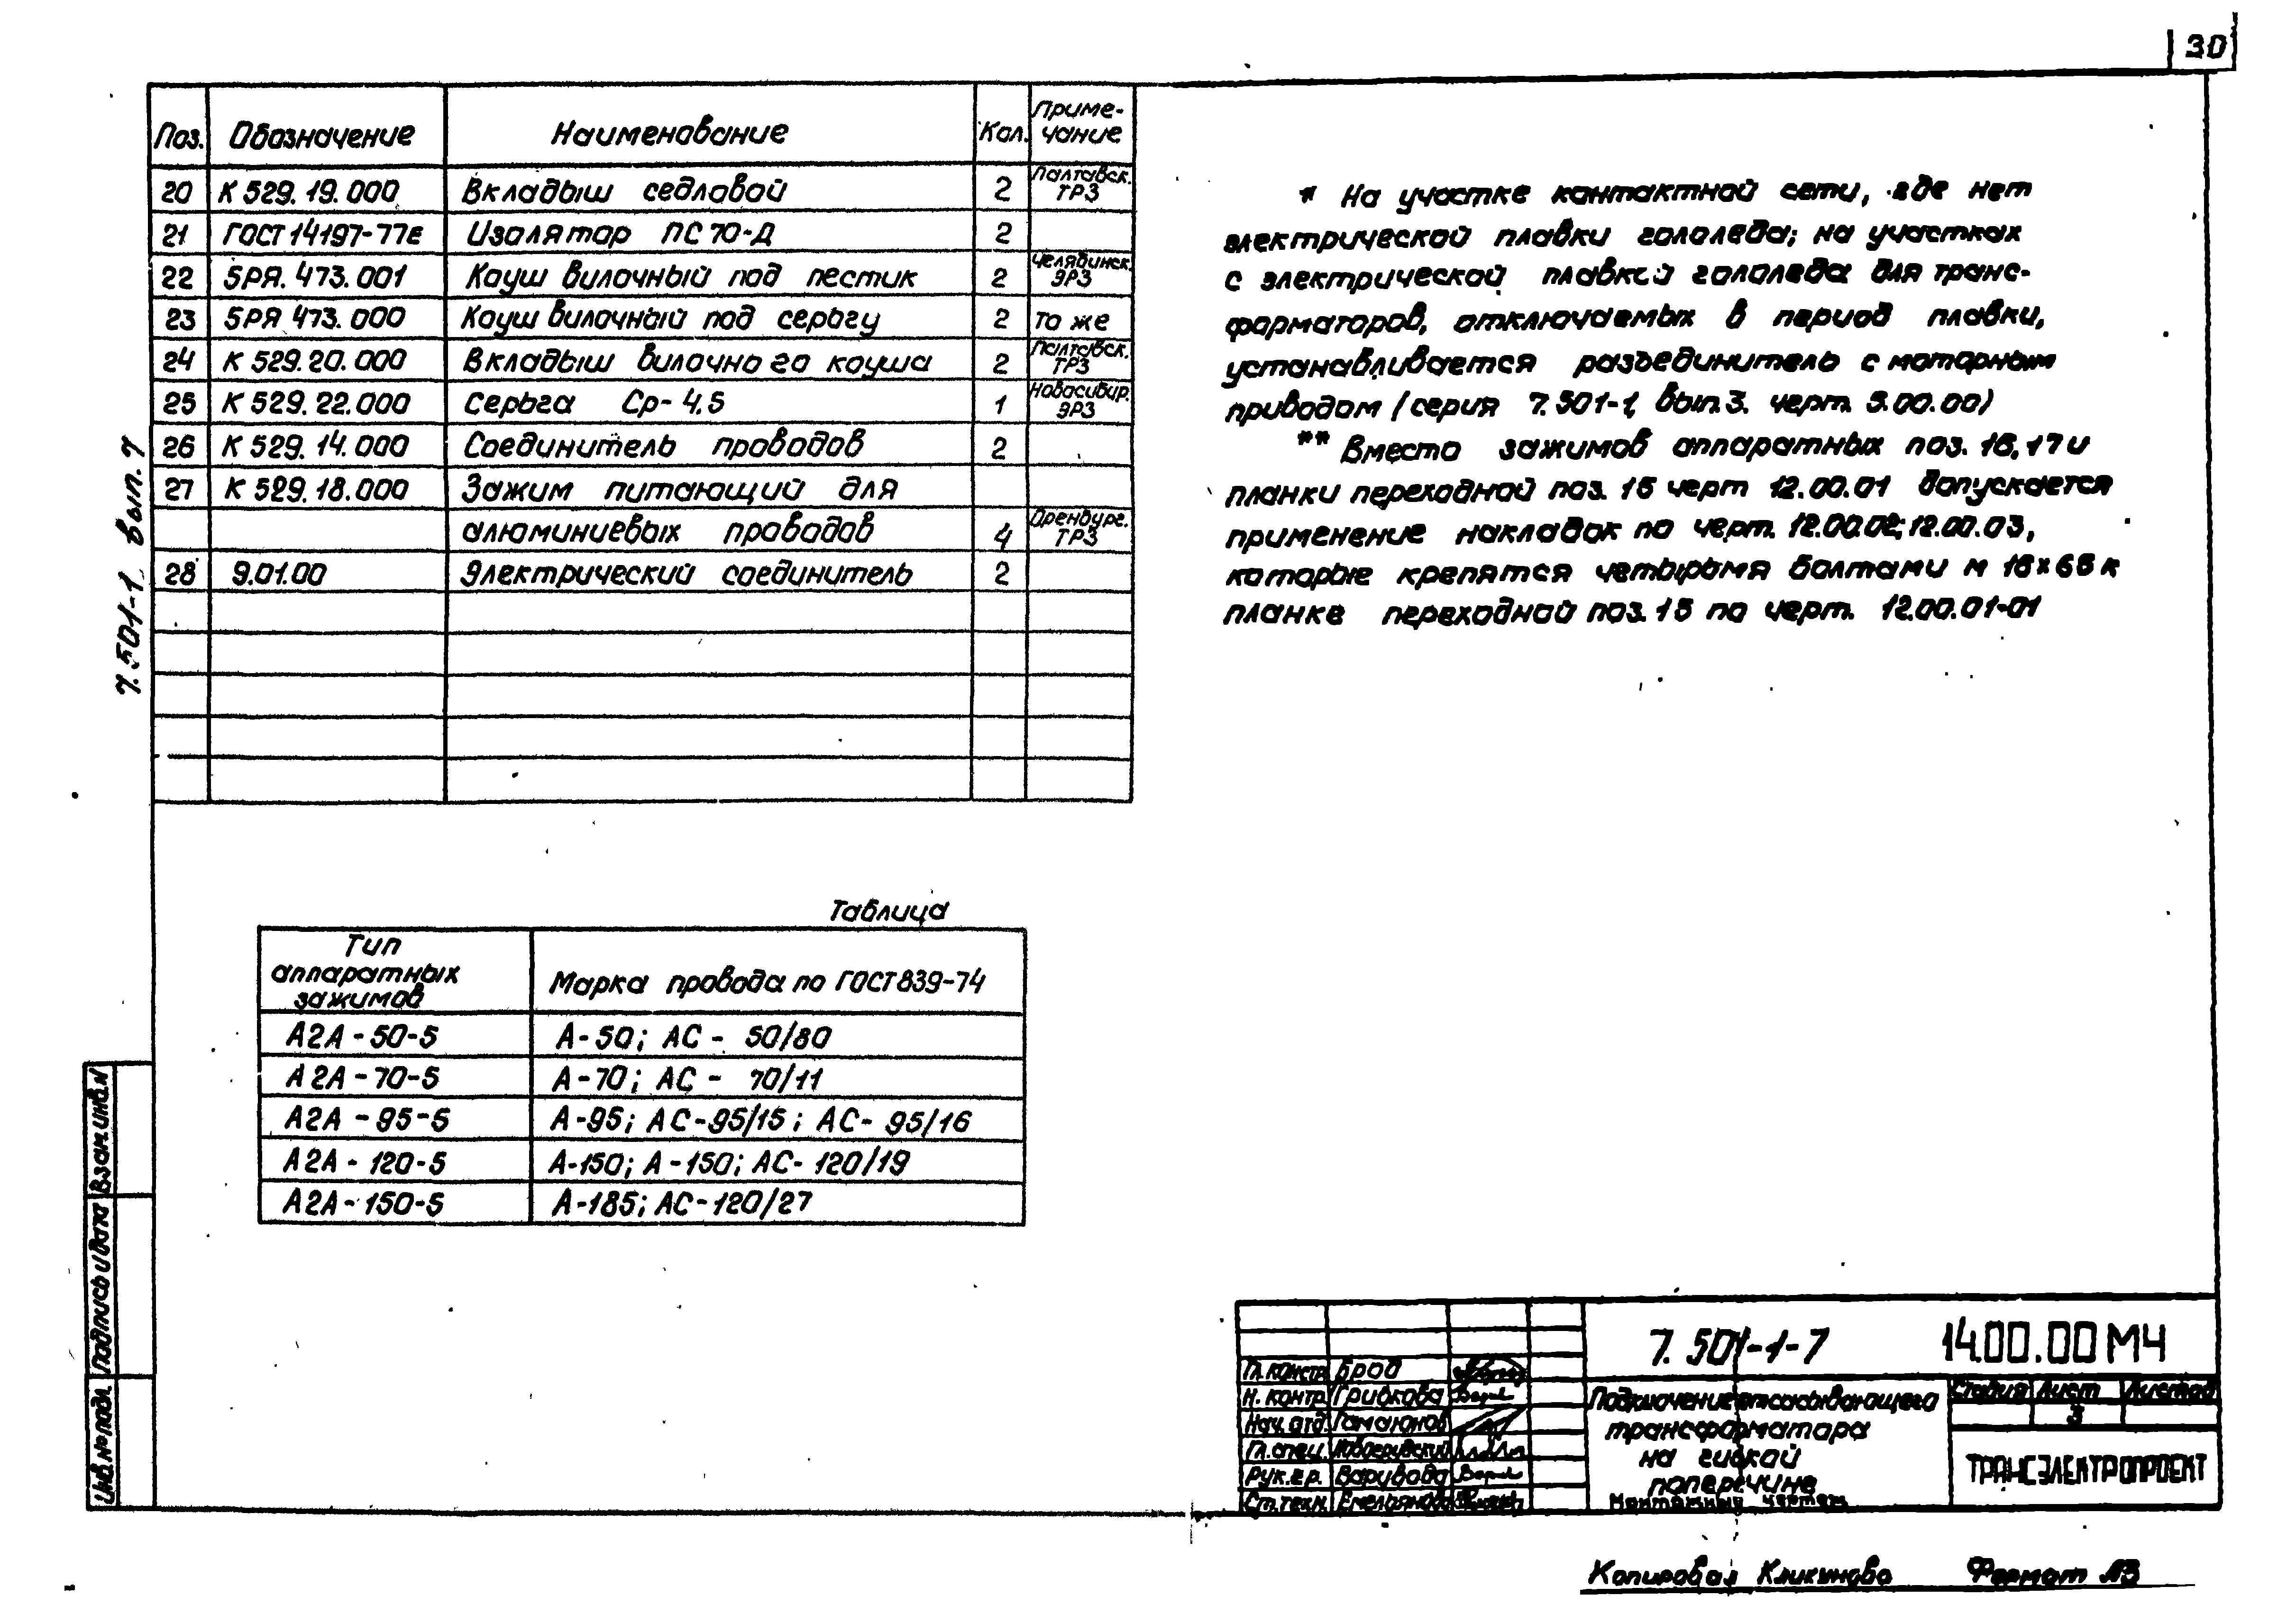 30
Поз. Обозначение Наименование Кол. Приме-
чание
20 К 529.19.000 Вкладыш седловой 2 Полтавск. ТРЗ
21 ГОСТ 14197-77Е Изолятор ПС 70-Д 2
22 5РЯ.473.001 Коуш вилочный под пестик 2 Челябинск. ЭРЗ
23 5РЯ 473.000 Коуш вилочный под серьгу 2 то же
24 К 529.20.000 Вкладыш вилочного коуша 2 Полтавск. ТРЗ
25 К 529.22.000 Серьга Ср-4,5 1 Новосибир. ЭРЗ
26 К 529.14.000 Соединитель проводов 2
27 К 529.18.000 Зажим питающий для
алюминиевых проводов 4 Оренбург. ТРЗ
28 9.01.00 Электрический соединитель 2
7.501-1 вып. 7
* На участке контактной сети, где нет
электрической плавки гололеда; на участках
с электрической плавкой гололеда для транс-
форматоров, отключаемых в период плавки,
устанавливается разъединитель с моторным
приводом (серия 7.501-1, вып.3. черт. 5.00.00)
** Вместо зажимов аппаратных поз. 16,17 и
планки переходной поз. 15 черт 12.00.01 допускается
применение накладок по черт. 12.00.02; 12.00.03,
которые крепятся четырьмя болтами М 16×65 к
планке переходной поз. 15 по черт. 12.00.01-01
Таблица
Тип
аппаратных
зажимов
Марка провода по ГОСТ 839-74
А2А-50-5 А-50; АС- 50/80
А2А-70-5 А-70; АС- 70/11
А2А-95-5 А-95; АС-95/15; АС- 95/16
А2А-120-5 А-150; А-150; АС-120/19
А2А-150-5 А-185; АС-120/27
Взам.инв.N
Подпись и дата
Инв.№ подл.
7.501-1-7 14.00.00 МЧ
Гл. констр. Брод
Н. контр. Грибкова
Нач. отд. Гамаюнов
Гл. спец.
Рук. гр. Варивода
Ст. техн. Емельянова
Подключение отсасывающего
трансформатора
на гибкой
поперечине
Монтажный чертеж
Стадия Лист Листов
3
ТРАНСЭЛЕКТРОПРОЕКТ
Копировал Формат А3